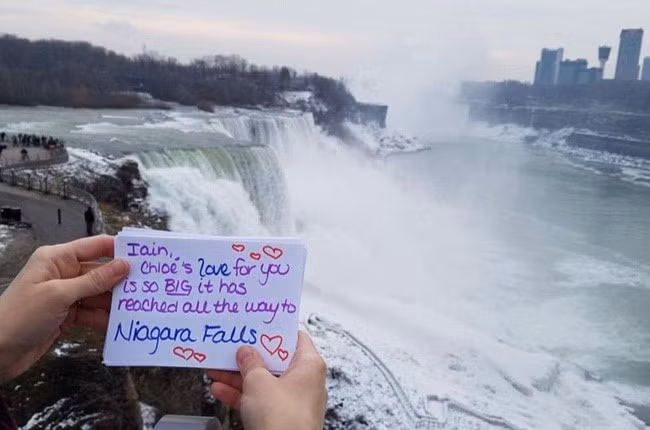 Iain,
Chloé's love for you
is so BIG it has
reached all the way to
Niagara Falls